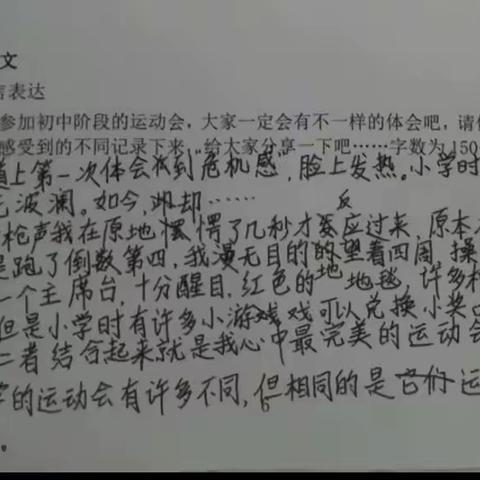 文
言表达
参加初中阶段的运动会，大家一定会有不一样的体会吧，请
感受到的不同记录下来，给大家分享一下吧……字数为150
道上第一次体会到危机感，脸上发热。小学时
无波澜。如今，却……
枪声我在原地愣了几秒才反应过来，原本
是跑了倒数第四，我漫无目的的望着四周，操
一个主席台，十分醒目，红色的地毯，许多
但是小学时有许多小游戏可以兑换小奖
二者结合起来就是我心中最完美的运动会
的运动会有许多不同，但相同的是它们运
。